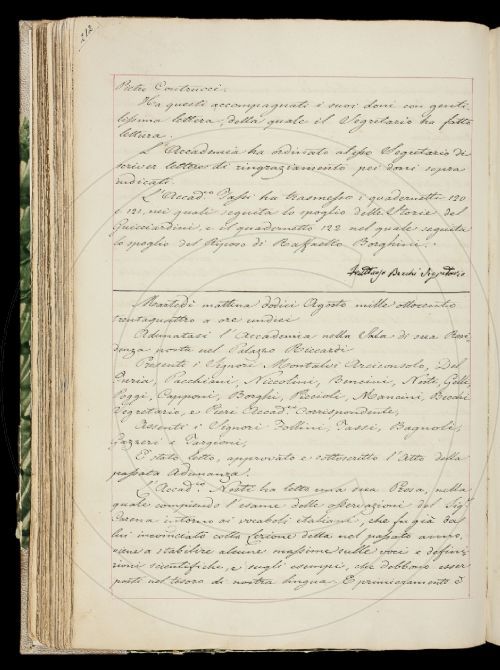 212
Pietro Contrucci.
Ha questi accompagnati i suoi doni con genti-
lissima lettera, della quale il Segretario ha fatta
lettura.
L'Accademia ha ordinato al Segretario di
scriver lettere di ringraziamento pei doni sopra
indicati.
L'Accad.co Tassi ha trasmesso i quadernetti 120
e 121, nei quali seguita lo spoglio delle Storie del
Guicciardini, e il quadernetto 122 nel quale seguita
lo spoglio del Riposo di Raffaello Borghini.
Fruttuoso Becchi Segretario
Martedì mattina dodici Agosto mille ottocento
trentaquattro a ore undici
Adunatasi l'Accademia nella Sala di sua Resi-
denza posta nel Palazzo Riccardi
Presenti i Signori Montalvi Arciconsolo, Del
Furia, Pacchiani, Niccolini, Bencini, Nesti, Gelli,
Poggi, Capponi, Borghi, Piccioli, Mancini, Becchi
Segretario, e Pieri Accad.co Corrispondente,
Assenti i Signori Follini, Tassi, Bagnoli,
Gazzeri e Targioni,
È stato letto, approvato e sottoscritto l'Atto della
passata Adunanza.
L'Accad.co Nesti ha letto una sua Prosa, nella
quale compiendo l'esame delle osservazioni del Sig.r
Parena intorno ai vocaboli italiani, che fu già da
lui incominciato colla Lezione detta nel passato anno,
viene a stabilire alcune massime sulle voci e defini-
zioni scientifiche, e sugli esempi, che debbono esser
posti nel tesoro di nostra lingua. E primieramente è